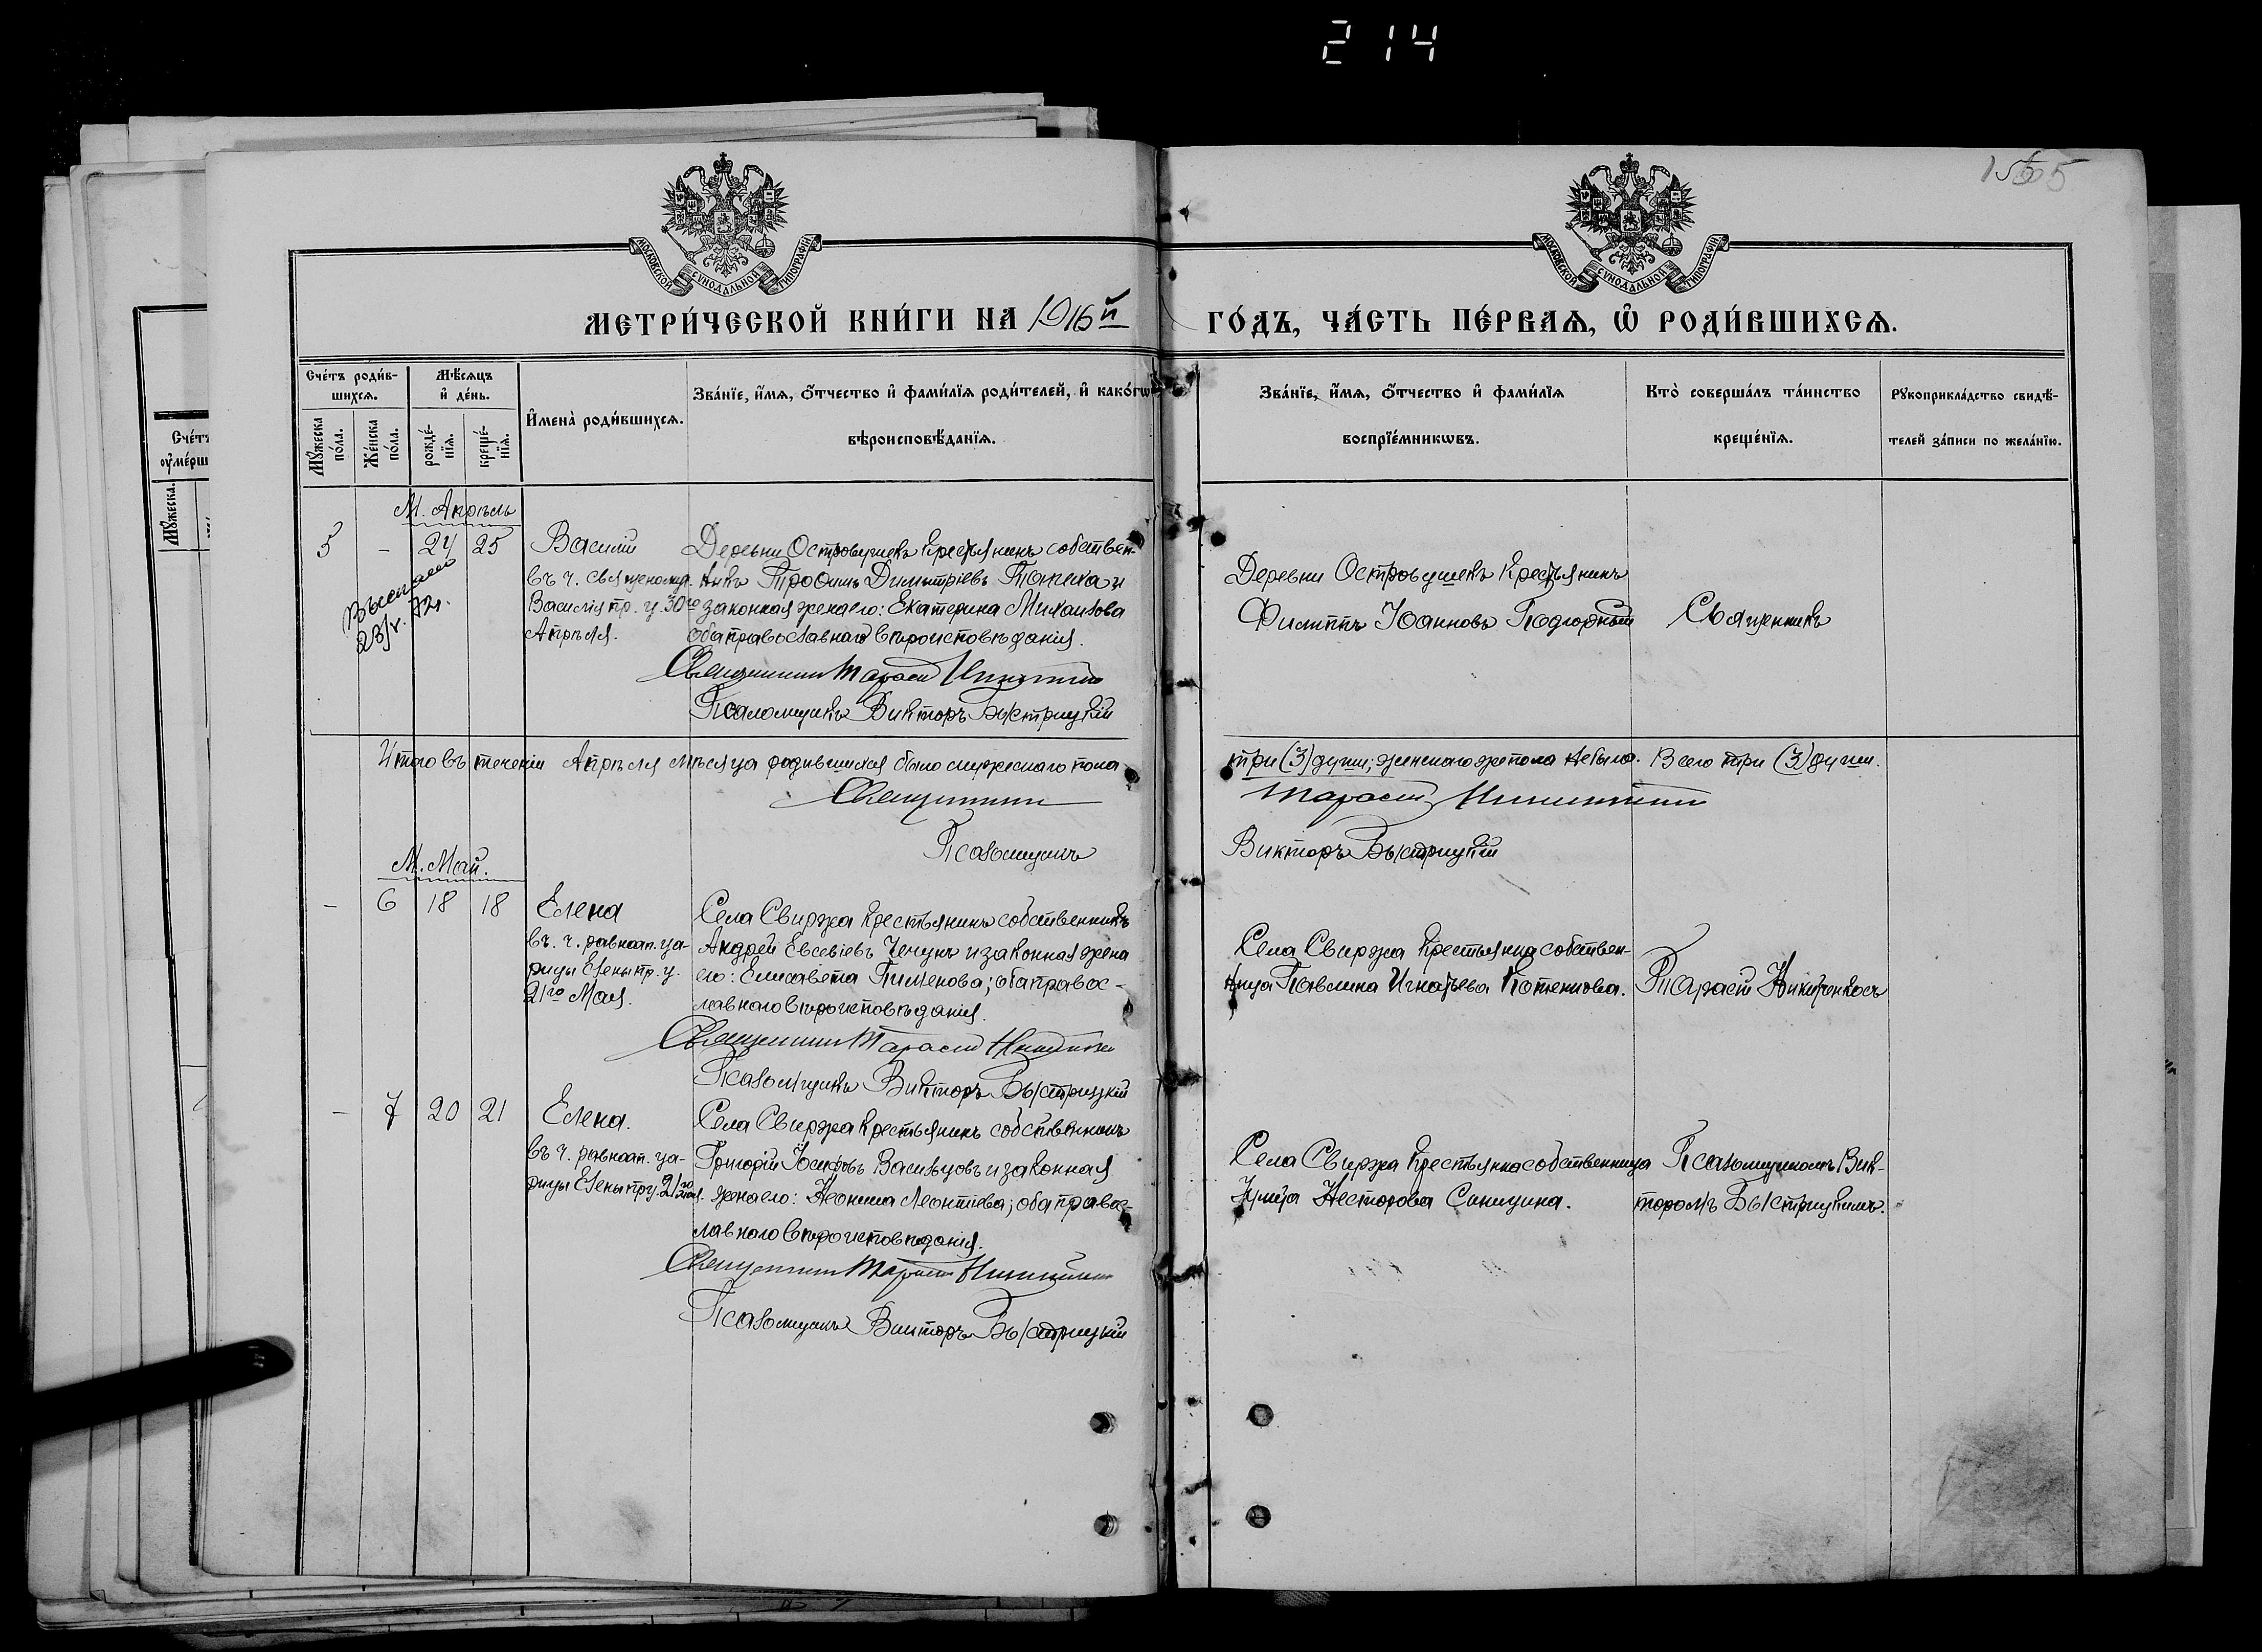 214
155
МОСКОВСКОЙ СУНОДАЛЬНОЙ ТИПОГРАФІИ
МОСКОВСКОЙ СУНОДАЛЬНОЙ ТИПОГРАФІИ
МЕТРИ́ЧЕСКОЙ КНИ́ГИ НА 1916й
ГО́ДЪ, ЧА́СТЬ ПЕ́РВАѦ, Ѡ҆ РОДИ́ВШИХСѦ.
Сче́тъ роди́в-
шихсѧ.
Мꙋ́жеска по́ла.
Же́нска по́ла.
Мѣ́сѧцъ
и҆ де́нь.
рожде́-нїѧ.
креще́-нїѧ.
И҆мена̀ роди́вшихсѧ.
Зва́нїе, и҆́мѧ, ѻ҆́тчество и҆ фами́лїѧ роди́телей, и҆ како́гѡ
вѣроисповѣ́данїѧ.
Зва́нїе, и҆́мѧ, ѻ҆́тчество и҆ фами́лїѧ
воспрїе́мникѡвъ.
Кто̀ соверша́лъ та́инство
креще́нїѧ.
Рꙋкоприкла́дство свидѣ́-
телей за́писи по жела́нїю.
Сче́тъ
ᲂу҆ме́рш
Мꙋ́жеска.
М. Апрѣль
5 - 24 25
Василій
въ ч. священомуч.
Василія пр. ц. 30го
Апрѣля.
23/V. 72г.
Деревни Островушекъ крестьянинъ собствен-
никъ Трофимъ Димитріевъ и
законная жена его: Екатерина Михаилова
оба православнаго вѣроисповѣданія.
Священникъ Тарасій Никитенко
Псаломщикъ Викторъ Быстрицкій
Деревни Островушекъ крестьянинъ
Филиппъ Іоанновъ Подгорный
Священникъ
Итого въ теченіи Апрѣля мѣсяца родившихся было мужескаго пола
три (3) души; женскаго же пола не было. Всего три (3) души.
Священникъ
Тарасій Никитенко
Псаломщикъ
Викторъ Быстрицкій
М. Май.
- 6 18 18
Елена
въ. ч. равноап. ца-
рицы Елены пр. ц.
21го Мая.
Села Свиржа крестьянинъ собственникъ
Андрей Евсевіевъ и законная жена
его: Елисавета Пименова; оба правос-
лавнаго вѣроисповѣданія.
Священникъ Тарасій Никитенко
Псаломщикъ Викторъ Быстрицкій
Села Свиржа крестьянка собствен-
ница Павлина Игнатьева Котенкова.
Тарасій Никитенковъ
- 7 20 21
Елена.
въ ч. равноап. ца-
рицы Елены пр. ц. 21го Мая.
Села Свиржа крестьянинъ собственникъ
Григорій Іосифовъ Васильцовъ и законная
жена его: Неонила Леонтіева; оба правос-
лавнаго вѣроисповѣданія.
Священникъ Тарасій Никитенко
Псаломщикъ Викторъ Быстрицкій
Села Свиржа крестьянка собственница
Нестерова Синицина.
Псаломщикомъ Вик-
торомъ Быстрицкимъ.